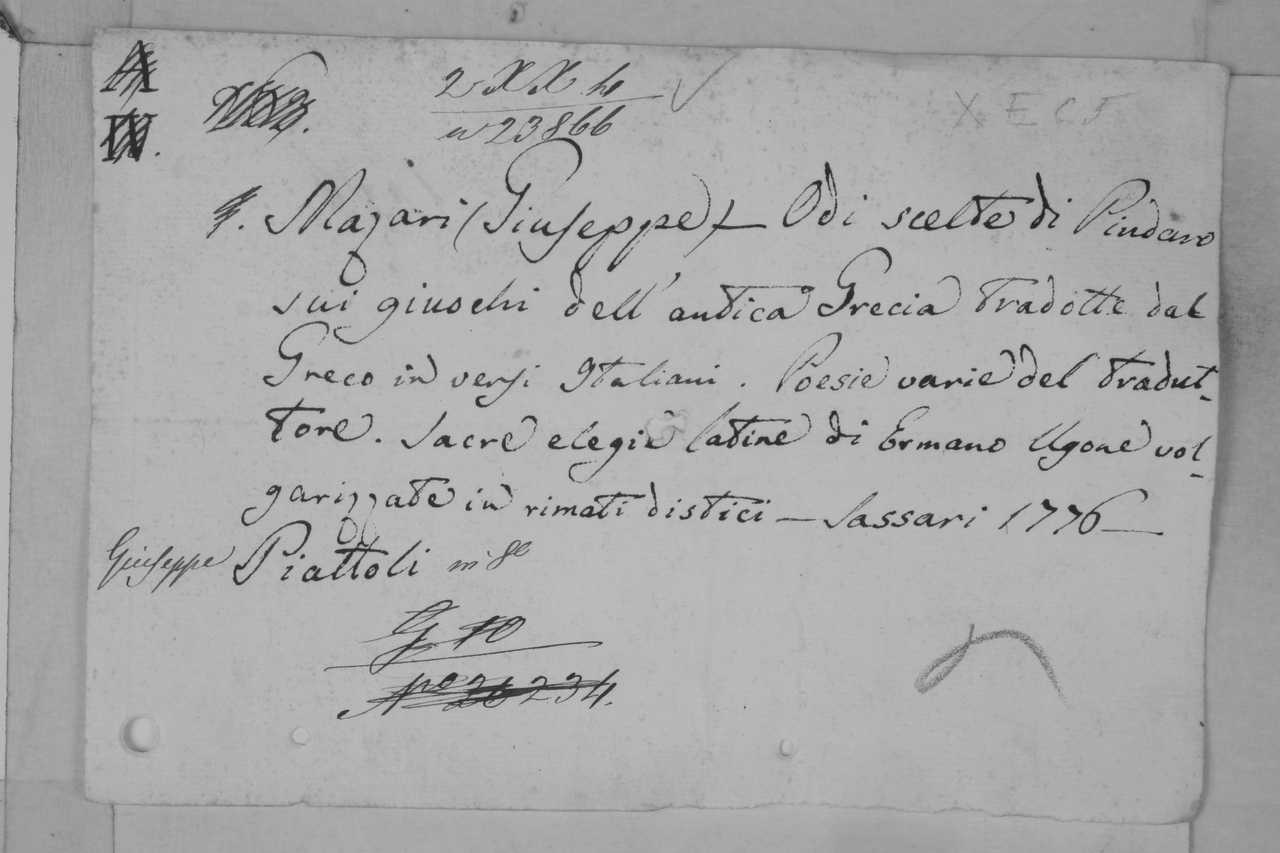 2 XX h
n 23866
X E C F
Mazari (Giuseppe) — Odi scelte di Pindaro
sui giuochi dell' antica Grecia tradotte dal
Greco in versi Italiani. Poesie varie del tradut-
tore. Sacre elegie latine di Ermano Ugone vol-
garizzate in rimati distici — Sassari 1776 —
Giuseppe Piattoli in 8º
G 10
Nº 234.